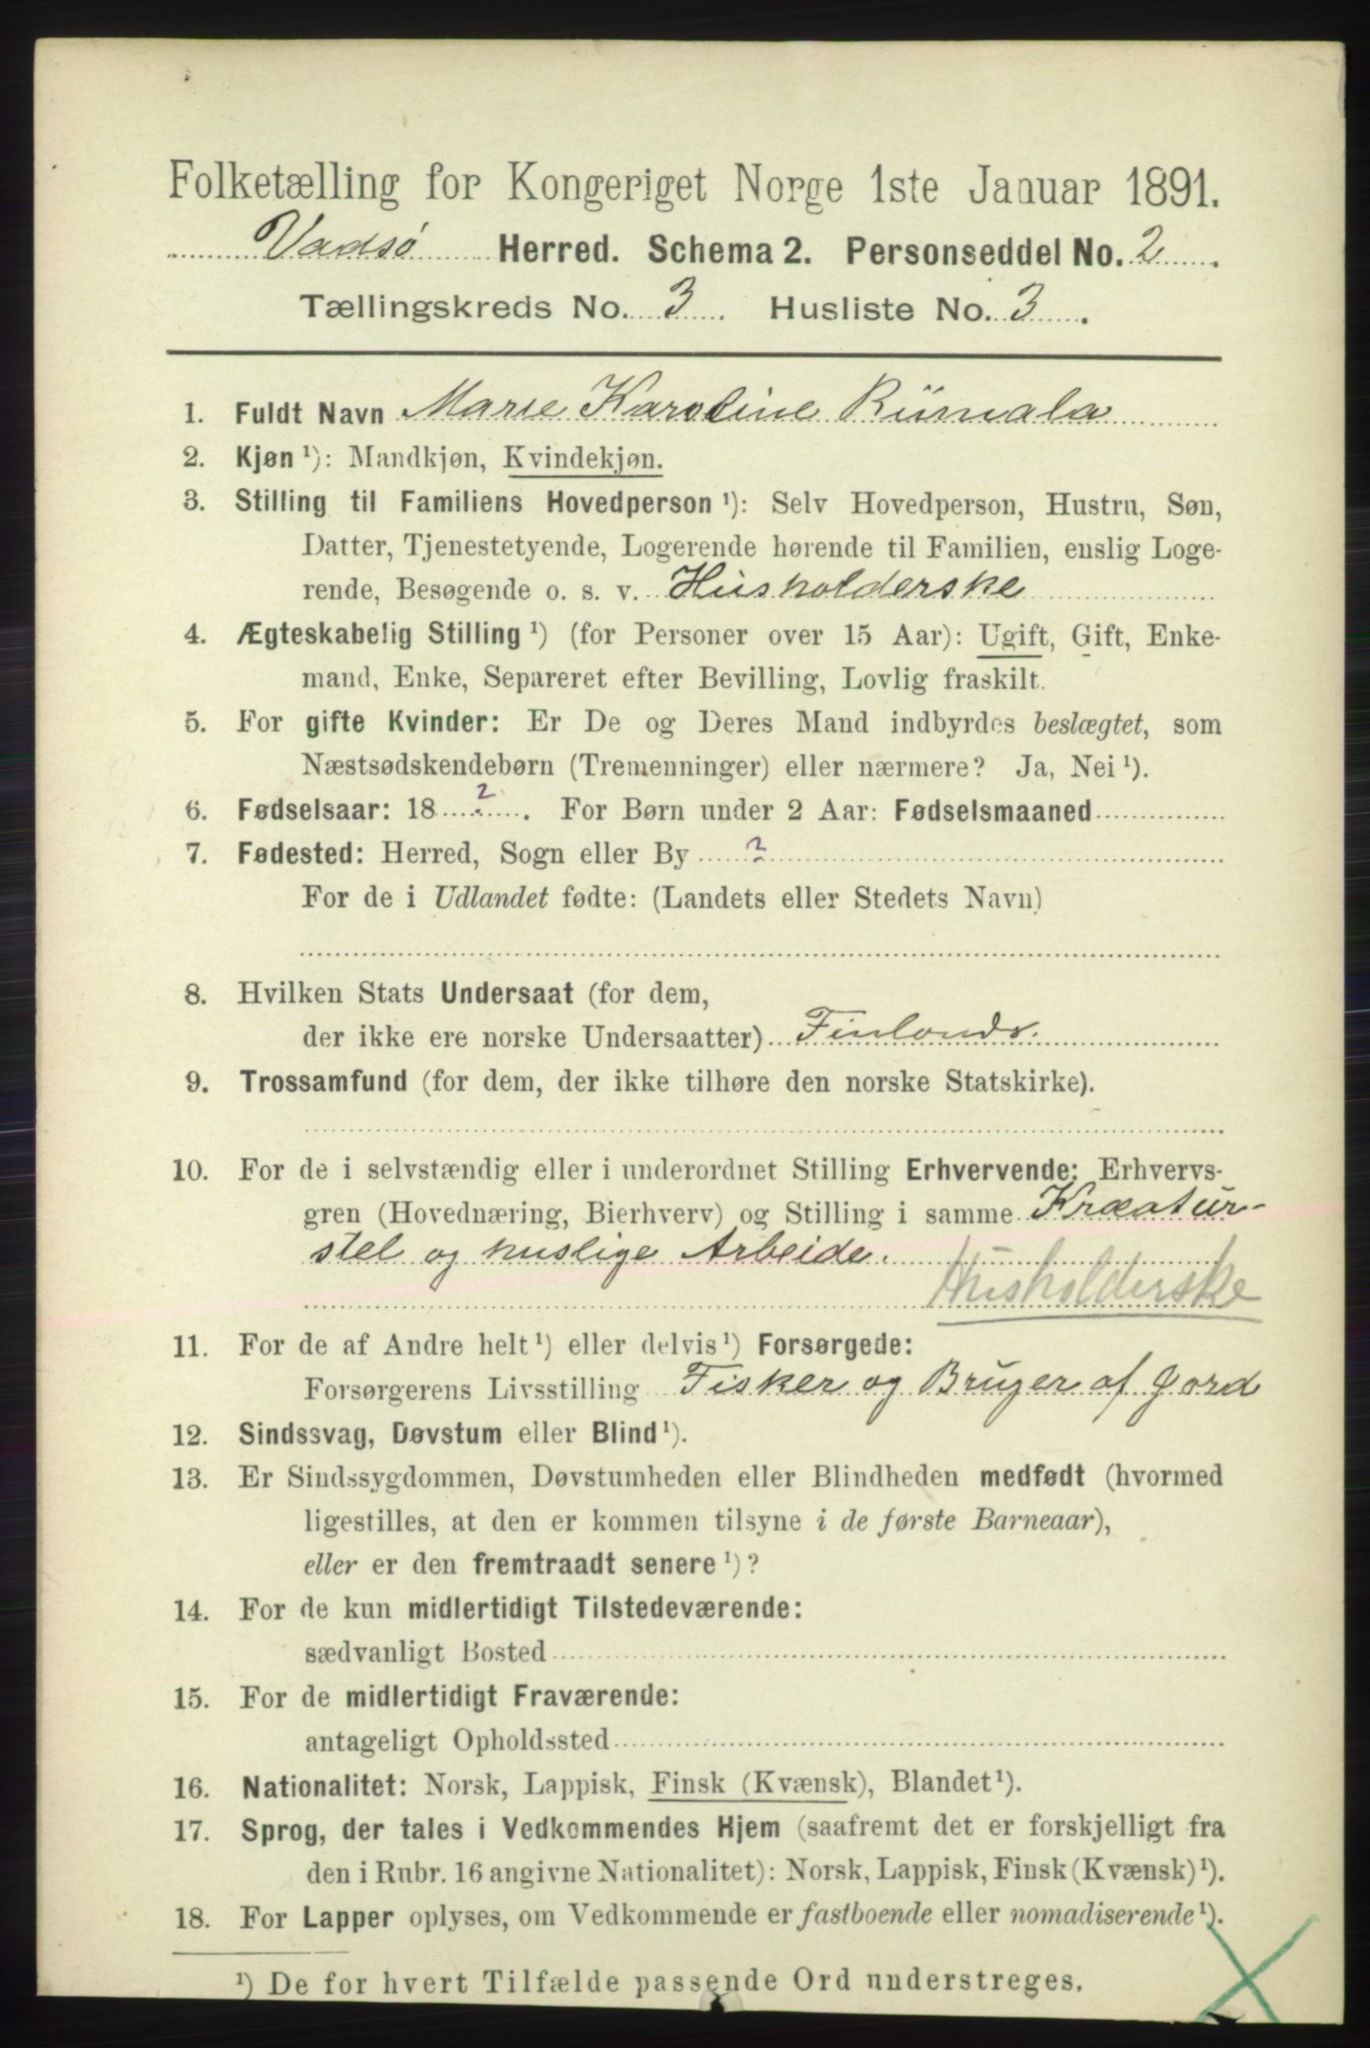 Folketælling for Kongeriget Norge 1ste Januar 1891.
Vadsø Herred. Schema 2. Personseddel No. 2.
Tællingskreds No. 3. Husliste No. 3.
1. Fuldt Navn Marie Karoline Riimala
2. Kjøn ¹): Mandkjøn, Kvindekjøn.
3. Stilling til Familiens Hovedperson ¹): Selv Hovedperson, Hustru, Søn,
Datter, Tjenestetyende, Logerende hørende til Familien, enslig Loge-
rende, Besøgende o. s. v. Husholderske
4. Ægteskabelig Stilling ¹) (for Personer over 15 Aar): Ugift, Gift, Enke-
mand, Enke, Separeret efter Bevilling, Lovlig fraskilt.
5. For gifte Kvinder: Er De og Deres Mand indbyrdes beslægtet, som
Næstsødskendebørn (Tremenninger) eller nærmere? Ja, Nei ¹).
6. Fødselsaar: 18 ?. For Børn under 2 Aar: Fødselsmaaned
7. Fødested: Herred, Sogn eller By ?
For de i Udlandet fødte: (Landets eller Stedets Navn)
8. Hvilken Stats Undersaat (for dem,
der ikke ere norske Undersaatter) Finlands.
9. Trossamfund (for dem, der ikke tilhøre den norske Statskirke).
10. For de i selvstændig eller i underordnet Stilling Erhvervende: Erhvervs-
gren (Hovednæring, Bierhverv) og Stilling i samme Kræatur-
stel og huslige Arbeide.
Husholderske
11. For de af Andre helt ¹) eller delvis ¹) Forsørgede:
Forsørgerens Livsstilling Fisker og Bruger af Jord
12. Sindssvag, Døvstum eller Blind ¹).
13. Er Sindssygdommen, Døvstumheden eller Blindheden medfødt (hvormed
ligestilles, at den er kommen tilsyne i de første Barneaar),
eller er den fremtraadt senere ¹)?
14. For de kun midlertidigt Tilstedeværende:
sædvanligt Bosted
15. For de midlertidigt Fraværende:
antageligt Opholdssted
16. Nationalitet: Norsk, Lappisk, Finsk (Kvænsk), Blandet ¹).
17. Sprog, der tales i Vedkommendes Hjem (saafremt det er forskjelligt fra
den i Rubr. 16 angivne Nationalitet): Norsk, Lappisk, Finsk (Kvænsk) ¹).
18. For Lapper oplyses, om Vedkommende er fastboende eller nomadiserende ¹).
¹) De for hvert Tilfælde passende Ord understreges.